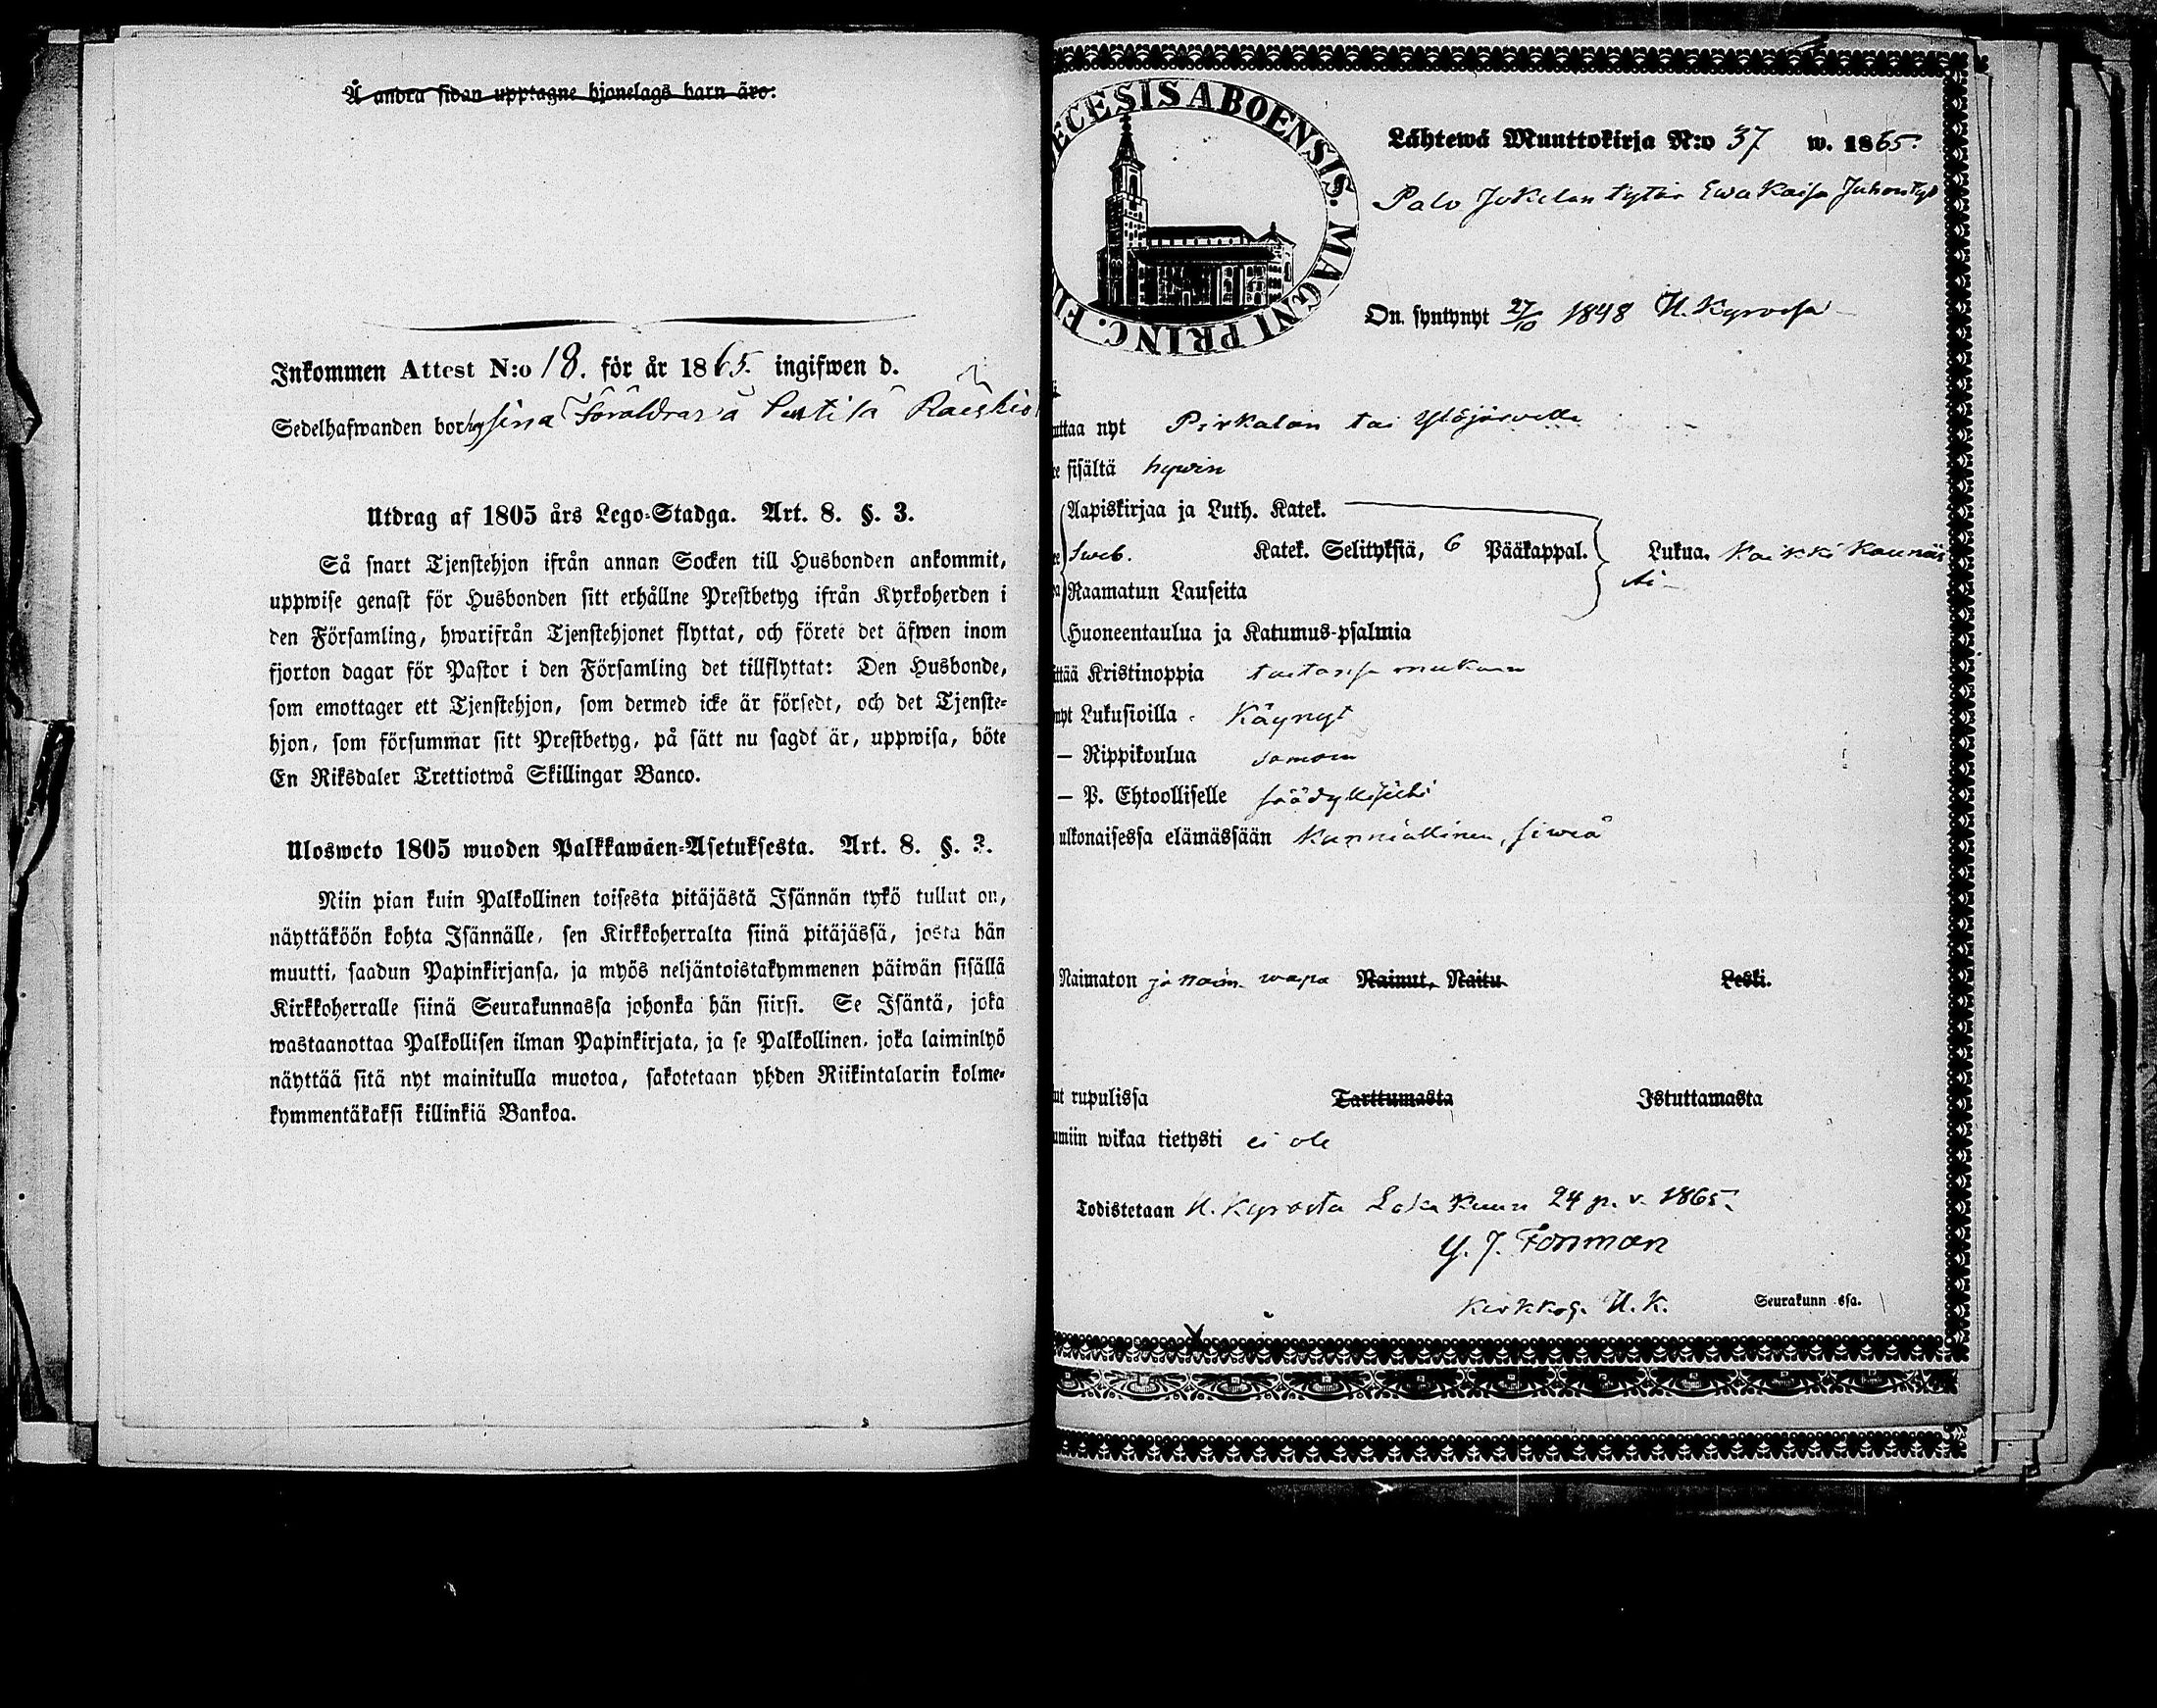 Å andra sidan upptagne hjonelags barn äro:
Inkommen Attest N:o 18. för år 1865. ingifwen d.
Sedelhafwanden bor hos sina Föräldrar å Pentilä
Utdrag af 1805 års Lego-Stadga. Art. 8. §. 3.
Så snart Tjenstehjon ifrån annan Socken till Husbonden ankommit,
uppwise genast för Husbonden sitt erhållne Prestbetyg ifrån Kyrkoherden i
den Församling, hwarifrån Tjenstehjonet flyttat, och förete det äfwen inom
fjorton dagar för Pastor i den Församling det tillflyttat: Den Husbonde,
som emottager ett Tjenstehjon, som dermed icke är försedt, och det Tjenste-
hjon, som försummar sitt Prestbetyg, på sätt nu sagdt är, uppwisa, böte
En Riksdaler Trettiotwå Skillingar Banco.
Ulosweto 1805 wuoden Palkkawäen-Asetuksesta. Art. 8. §. 3.
Niin pian kuin Palkollinen toisesta pitäjästä Isännän tykö tullut on,
näyttäköön kohta Isännälle, sen Kirkkoherralta siinä pitäjässä, josta hän
muutti, saadun Papinkirjansa, ja myös neljäntoistakymmenen päiwän sisällä
Kirkkoherralle siinä Seurakunnassa johonka hän siirsi. Se Isäntä, joka
wastaanottaa Palkollisen ilman Papinkirjata, ja se Palkollinen, joka laiminlyö
näyttää sitä nyt mainitulla muotoa, sakotetaan yhden Riikintalarin kolme-
kymmentäkaksi killinkiä Bankoa.
ECESIS ABOENSIS. MAGNI PRINC. FI
Lähtewä Muuttokirja N:o 37 w. 1865.
Palo Jokelan tytär Ewa Kaisa Juhontyt
On syntynyt 27/10 1848 H. Kyrössä
uttaa nyt Pirkalan tai Ylöjärvelle
sisältä hywin
Aapiskirjaa ja Luth. Katek.
Sweb. Katek. Selityksiä, 6 Pääkappal. Lukua. Kaikki kaunis
ti
Raamatun Lauseita
Huoneentaulua ja Katumus-psalmia
ttää Kristinoppia taitonsa mukaan
nyt Lukusioilla Käynyt
— Rippikoulua samoin
— P. Ehtoolliselle säädyllisesti
ulkonaisessa elämässään Kunniallinen, siweä
Naimaton ja naim. wapa Nainut, Naitu Leski.
ut rupulissa Tarttumasta Istuttamasta
umiin wikaa tietysti ei ole
Todistetaan H. Kyröstä Loka Kuun 24 p. v. 1865.
G. J. Forsman
Kirkkoh. H. K. Seurakunn ssa.